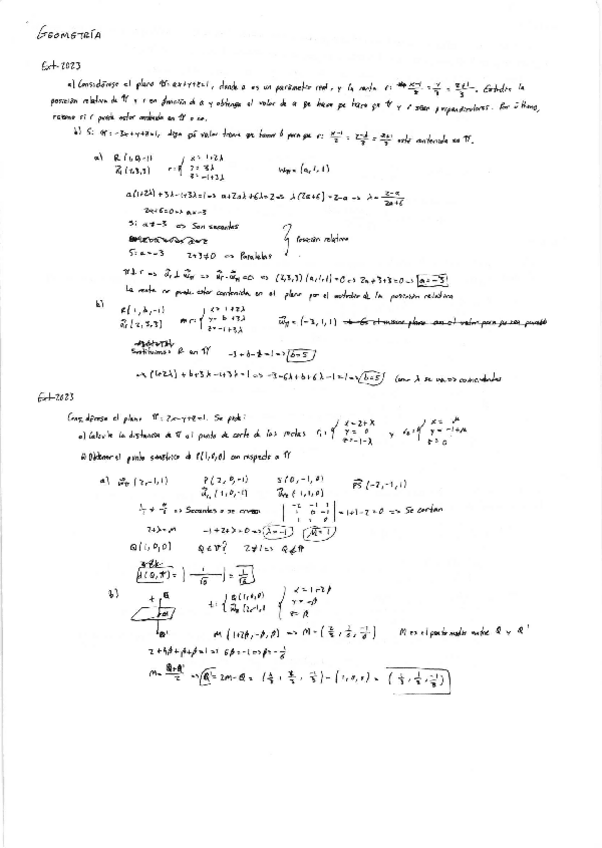 GEOMETRÍA
Ext-2023
a) Considérese el plano π: ax+y+z=1, donde a es un parámetro real, y la recta r: x-1/2 = y/3 = z+1/3. Estudie la
posición relativa de π y r en función de a y obtenga el valor de a que hace que π y r sean perpendiculares. Por último,
razone si r puede estar contenida en π o no.
b) Si π = -3x+y+z=1, diga qué valor tiene que tomar b para que r: x-1/2 = y-b/3 = z+1/3 esté contenida en π.
a) R(1,0,-1)
(2,3,3) r= x=1+2λ
y=3λ
z=-1+3λ
= (a,1,1)
a(1+2λ)+3λ-1+3λ=1 => a+2aλ+6λ=2 => λ(2a+6)=2-a => λ= 2-a/2a+6
2a+6=0 => a=-3
Si a≠-3 => Son secantes
Si a=-3 2+3≠0 => Paralelas
Posición relativa
(2,3,3)(a,1,1)=0 => 2a+3+3=0 => a=-3
La recta no puede estar contenida en el plano por el estudio de la posición relativa
b) R(1,b,-1)
(2,3,3) r= x=1+2λ
y=b+3λ
z=-1+3λ
= (-3,1,1)
Sustituimos R en π -3+b-1=1 => b=5
-3(1+2λ)+b+3λ-1+3λ=1 => -3-6λ+b+6λ-1=1 => b=5
Ext-2023
Considérese el plano π: 2x-y+z=1. Se pide:
a) Calcule la distancia de π al punto de corte de las rectas r: x=2+λ
y=0
z=-1-λ
y x=μ
y=-1+μ
z=0
b) Obtener el punto simétrico de P(1,0,0) con respecto a π
a) (2,-1,1) P(2,0,-1) S(0,-1,0) PS(-2,-1,1)
(1,0,-1) (1,1,0)
=> Secantes o se cruzan = 1+1-2=0 => Se cortan
2+λ=μ -1+2+λ=0 => λ=-1 μ=1
Q(1,0,0) Q∈π? 2≠1 => Q∉π
d(Q,π) = | 1/√6 | = 1/√6
b) t: Q(1,0,0)
(2,-1,1)
x=1+2β
y=-β
z=β
M(1+2β,-β,β) => M=(2/3, 1/6, -1/6) M es el punto medio entre Q y Q'
2+4β+β+β=1 => 6β=-1 => β=-1/6
M= Q+Q'/2 => Q'=2M-Q = (4/3, 1/3, -1/3)-(1,0,0) = (1/3, 1/3, -1/3)